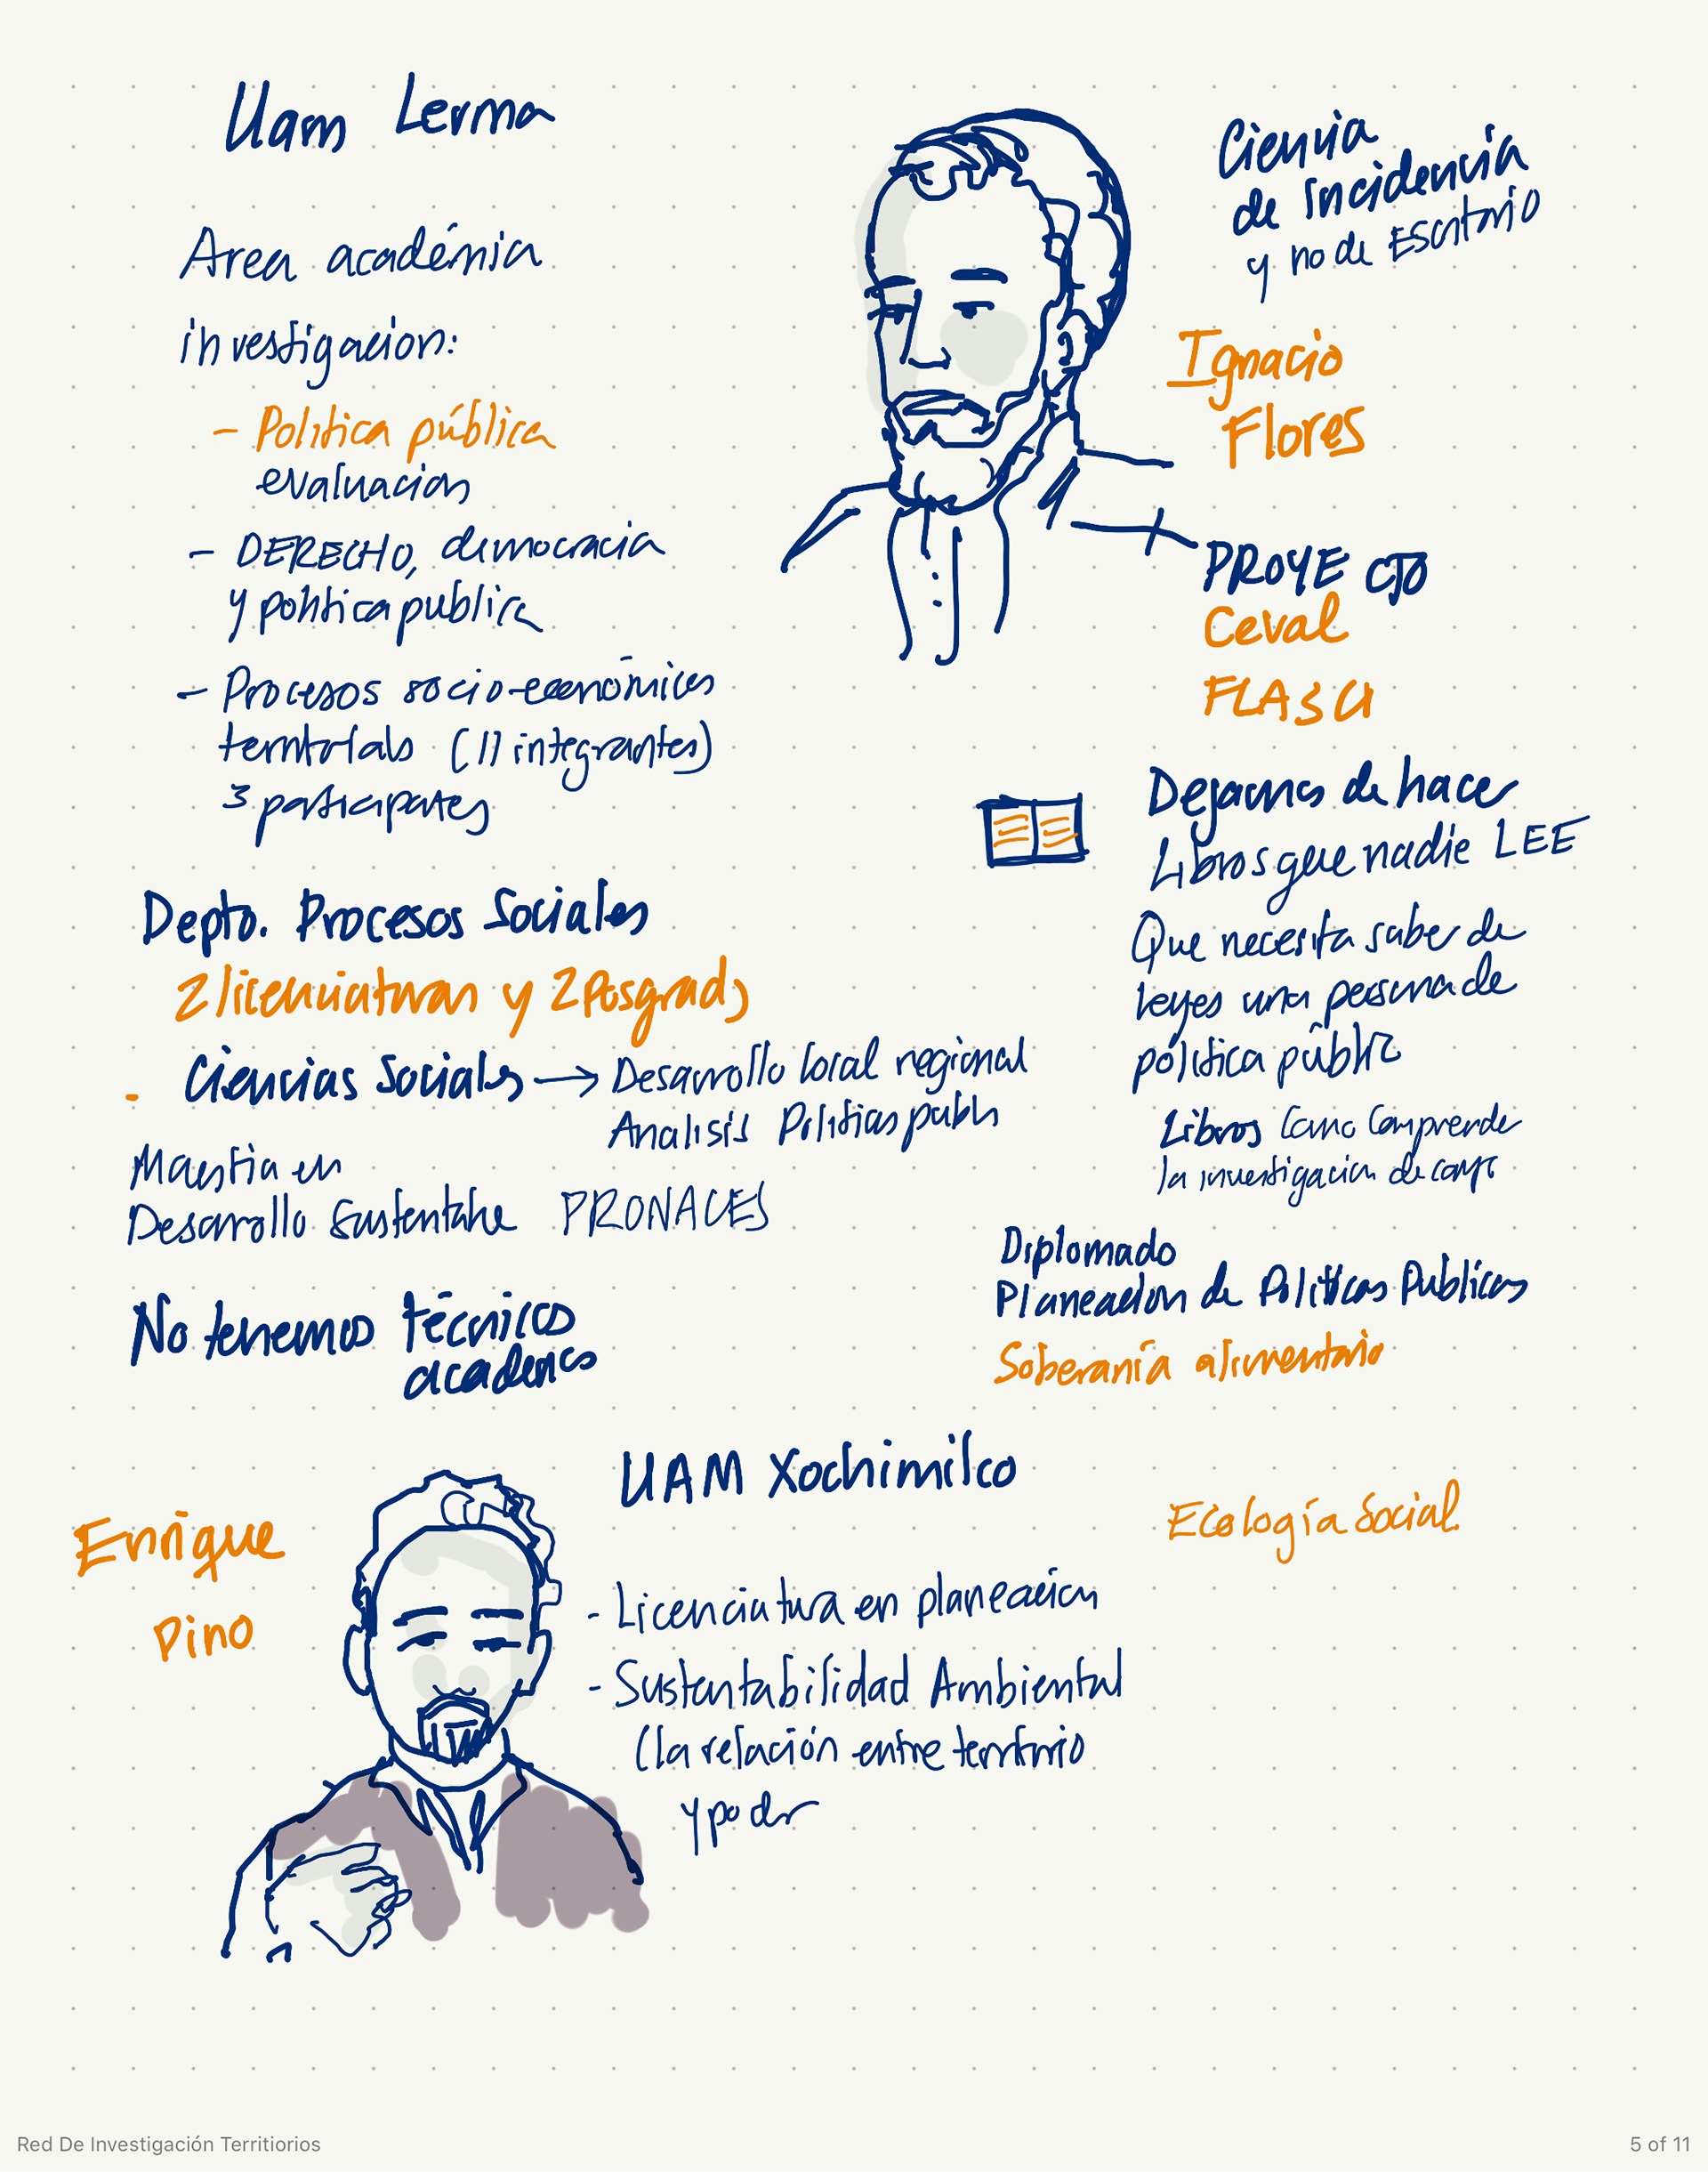 Uam Lerma
Area académia
investigacion:
- Política pública
evaluacion
- DERECHO, democracia
y politica publica
- Procesos socio-económicos
(11 integrantes)
3 participates
Depto. Procesos Sociales
2 licenciaturas y 2 Posgrados
- Ciencias Sociales → Desarrollo local regional
Analisis Politicas publs
Maestria en
Desarrollo Sustentable PRONACES
No tenemos técnicos
academcs
Ciencia
de incidencia
y no de Escritorio
Ignacio
Flores
PROYECTO
Ceval
Dejamos de hacer
Libros que nadie LEE
Que necesita saber de
leyes una persona de
política públic
Libros como Comprende
la investigacion de
Diplomado
Planeación de Politicas Publicas
Soberanía alimentaria
UAM Xochimilco
Enrique
Pino
Ecología Social
- Licenciatura en planeación
- Sustentabilidad Ambiental
(la relación entre territorio
y poder
Red De Investigación Territiorios
5 of 11